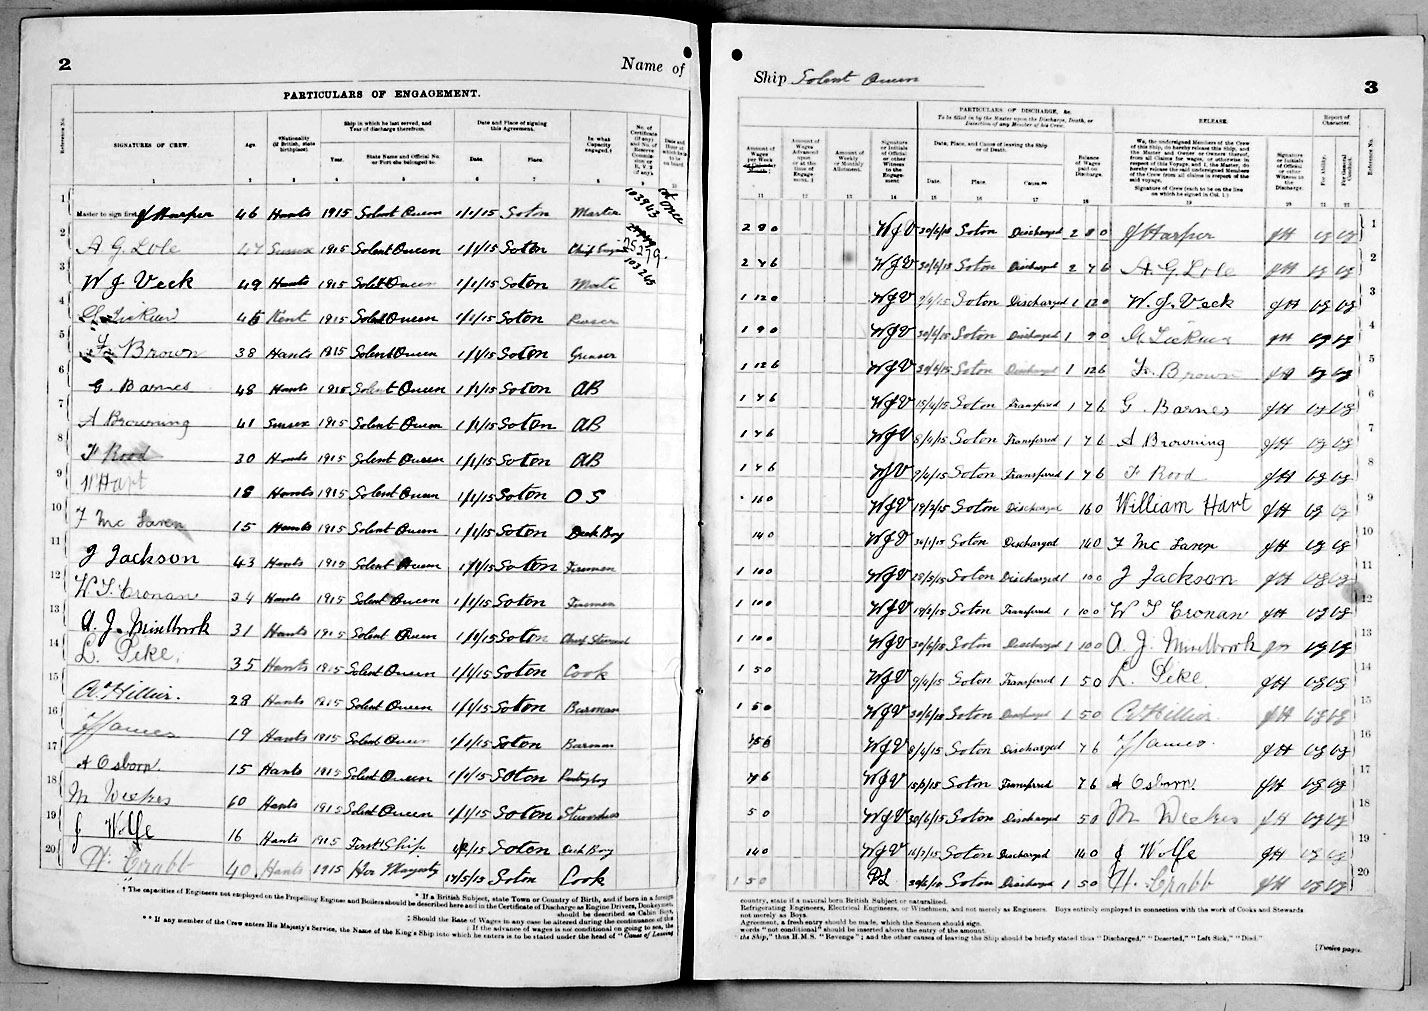 2
Name of
PARTICULARS OF ENGAGEMENT.
Reference No.
SIGNATURES OF CREW.
Age.
*Nationality (if British, state birthplace).
Ship in which he last served, and Year of discharge therefrom.
Year.
State Name and Official No. or Port she belonged to.
Date and Place of signing this Agreement.
Date.
Place.
In what Capacity engaged.†
1 Master to sign first. J Harper 46 Hants 1915 Solent Queen 1/1/15 Soton Master 103943 At once
2 A G Lole 47 Sussex 1915 Solent Queen 1/1/15 Soton Chief Engineer 25279
3 W J Veck 49 Hants 1915 Solent Queen 1/1/15 Soton Mate 103265
4 Kent 1915 Solent Queen 1/1/15 Soton Purser
5 Brown 38 Hants 1915 Solent Queen 1/1/15 Soton Greaser
6 G. Barnes 48 Hants 1915 Solent Queen 1/1/15 Soton AB
7 A Browning 41 Sussex 1915 Solent Queen 1/1/15 Soton AB
8 F Rood 30 Hants 1915 Solent Queen 1/1/15 Soton AB
9 W Hart 18 Hants 1915 Solent Queen 1/1/15 Soton O S
10 F Mc Laren 15 Hants 1915 Solent Queen 1/1/15 Soton Deck Boy
11 J Jackson 43 Hants 1915 Solent Queen 1/1/15 Soton Fireman
12 W T Cronan 34 Hants 1915 Solent Queen 1/1/15 Soton Fireman
13 A. J. 31 Hants 1915 Solent Queen 1/1/15 Soton Chief Steward
14 L. Peke. 35 Hants 1915 Solent Queen 1/1/15 Soton Cook
15 Hillier. 28 Hants 1915 Solent Queen 1/1/15 Soton Barman
16 James 19 Hants 1915 Solent Queen 1/1/15 Soton Barman
17 A Osborn. 15 Hants 1915 Solent Queen 1/1/15 Soton Pantryboy
18 M Weekes 60 Hants 1915 Solent Queen 1/1/15 Soton Stewardess
19 J Wolfe 16 Hants 1915 First Ship Soton Deck Boy
20 H. Crabb 40 Hants 1915 Her Majesty 14/5/15 Soton Cook
† The capacities of Engineers not employed on the Propelling Engines and Boilers should be described here and in the Certificate of Discharge as Engine Drivers, Donkeymen,
* If a British Subject, state Town or Country of Birth, and if born in a foreign
should be described as Cabin Boys,
‡ Should the Rate of Wages in any case be altered during the continuance of this
: If the advance of wages is not conditional on going to sea, the
** If any member of the Crew enters His Majesty's Service, the Name of the King's Ship into which he enters is to be stated under the head of "Cause of Leaving
Ship Solent Queen
3
PARTICULARS OF DISCHARGE, &c.
To be filled in by the Master upon the Discharge, Death, or Desertion of any Member of his Crew.
RELEASE.
Report of Character.
Amount of Wages per Week or Calendar Month.‡
Amount of Wages Advanced upon or at the time of Engagement.‡
Amount of Weekly or Monthly Allotment.
Signature or Initials of Official or other Witness to the Engagement
Date, Place, and Cause of leaving the Ship or of Death.
Date.
Place.
Cause.**
Balance of Wages paid on Discharge.
We, the undersigned Members of the Crew of this Ship, do hereby release this Ship, and the Master and Owner or Owners thereof, from all Claims for wages, or otherwise in respect of this Voyage, and I, the Master, do hereby release the undersigned Members of the Crew from all claims in respect of the said voyage.
Signature of Crew (each to be on the line on which he signed in Col. 1.)
Signature or Initials of Official or other Witness to the Discharge.
For Ability.
For General Conduct.
Reference No.
2 8 0 WJV Soton Discharged 2 8 0 J Harper JH VG VG 1
2 7 6 WJV 30/6/15 Soton Discharged 2 7 6 A. G. Lole JH VG VG 2
1 12 0 WJV Soton Discharged 1 12 0 W. J. Veck JH VG VG 3
1 9 0 WJV 30/6/15 Soton Discharged 1 9 0 JH VG VG 4
1 12 6 WJV 30/6/15 Soton Discharged 1 12 6 Brown JH VG VG 5
1 7 6 WJV 15/4/15 Soton Transferred 1 7 6 G. Barnes JH VG VG 6
1 7 6 WJV 8/4/15 Soton Transferred 1 7 6 A Browning JH VG VG 7
1 7 6 WJV 9/4/15 Soton Transferred 1 7 6 F Rood JH VG VG 8
16 0 WJV 19/2/15 Soton Discharged 16 0 William Hart JH VG VG 9
14 0 WJV Soton Discharged 14 0 F Mc Laren JH VG VG 10
1 10 0 WJV 25/5/15 Soton Discharged 1 10 0 J Jackson JH VG VG 11
1 10 0 WJV Soton Transferred 1 10 0 W T Cronan JH VG VG 12
1 10 0 WJV 30/6/15 Soton Discharged 1 10 0 A. J. VG VG 13
1 5 0 WJV 9/4/15 Soton Transferred 1 5 0 L. Peke. JH VG VG 14
1 5 0 WJV 30/6/15 Soton Discharged 1 5 0 Hillier JH VG VG 15
WJV 8/4/15 Soton Discharged 7 6 James. JH VG VG 16
7 6 WJV Soton Transferred 7 6 A Osborn. JH VG VG 17
5 0 WJV 30/6/15 Soton Discharged 5 0 M Weekes JH VG VG 18
14 0 WJV Soton Discharged 14 0 J Wolfe JH VG VG 19
1 5 0 Soton Discharged 1 5 0 H. Crabb JH VG VG 20
country, state if a natural born British Subject or naturalized.
Refrigerating Engineers, Electrical Engineers, or Winchmen, and not merely as Engineers. Boys entirely employed in connection with the work of Cooks and Stewards
not merely as Boys.
Agreement, a fresh entry should be made, which the Seamen should sign.
words "not conditional" should be inserted above the entry of the amount.
the Ship," thus H.M.S. "Revenge"; and the other causes of leaving the Ship should be briefly stated thus "Discharged," "Deserted," "Left Sick," "Died."
[Twelve pages.